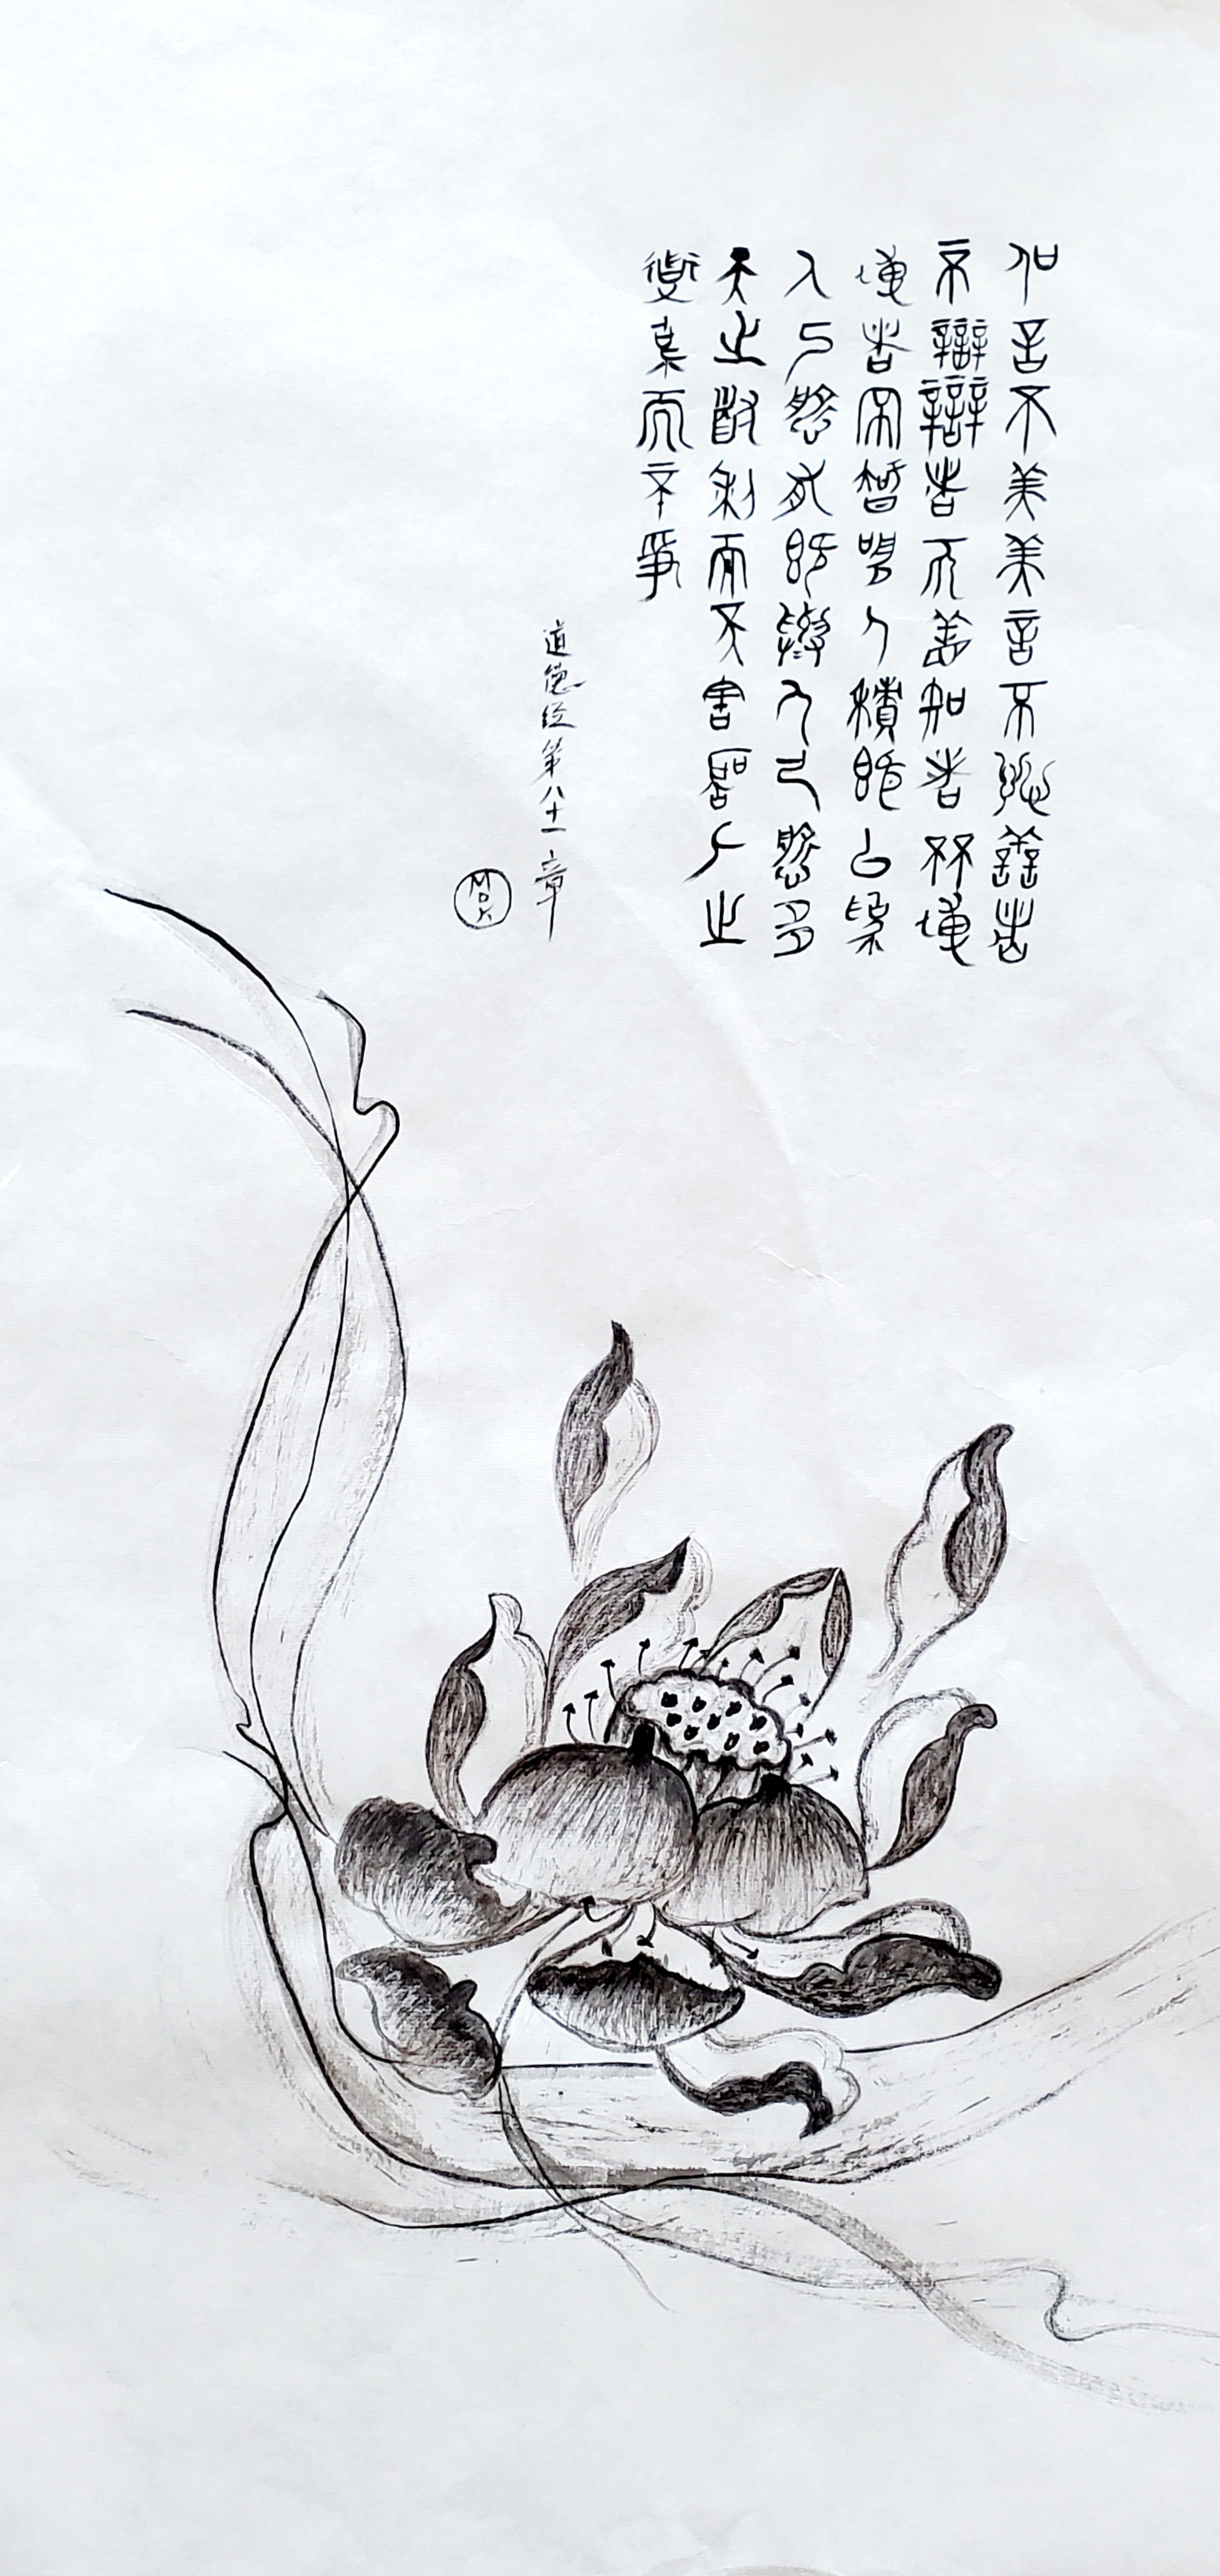 信言不美美言不信善者
不辯辯者不善知者不博
博者不知聖人積既以為
人己愈有既與人己愈多
天之道利而不害聖人之
道為而不爭
道德经第八十一章
MOK